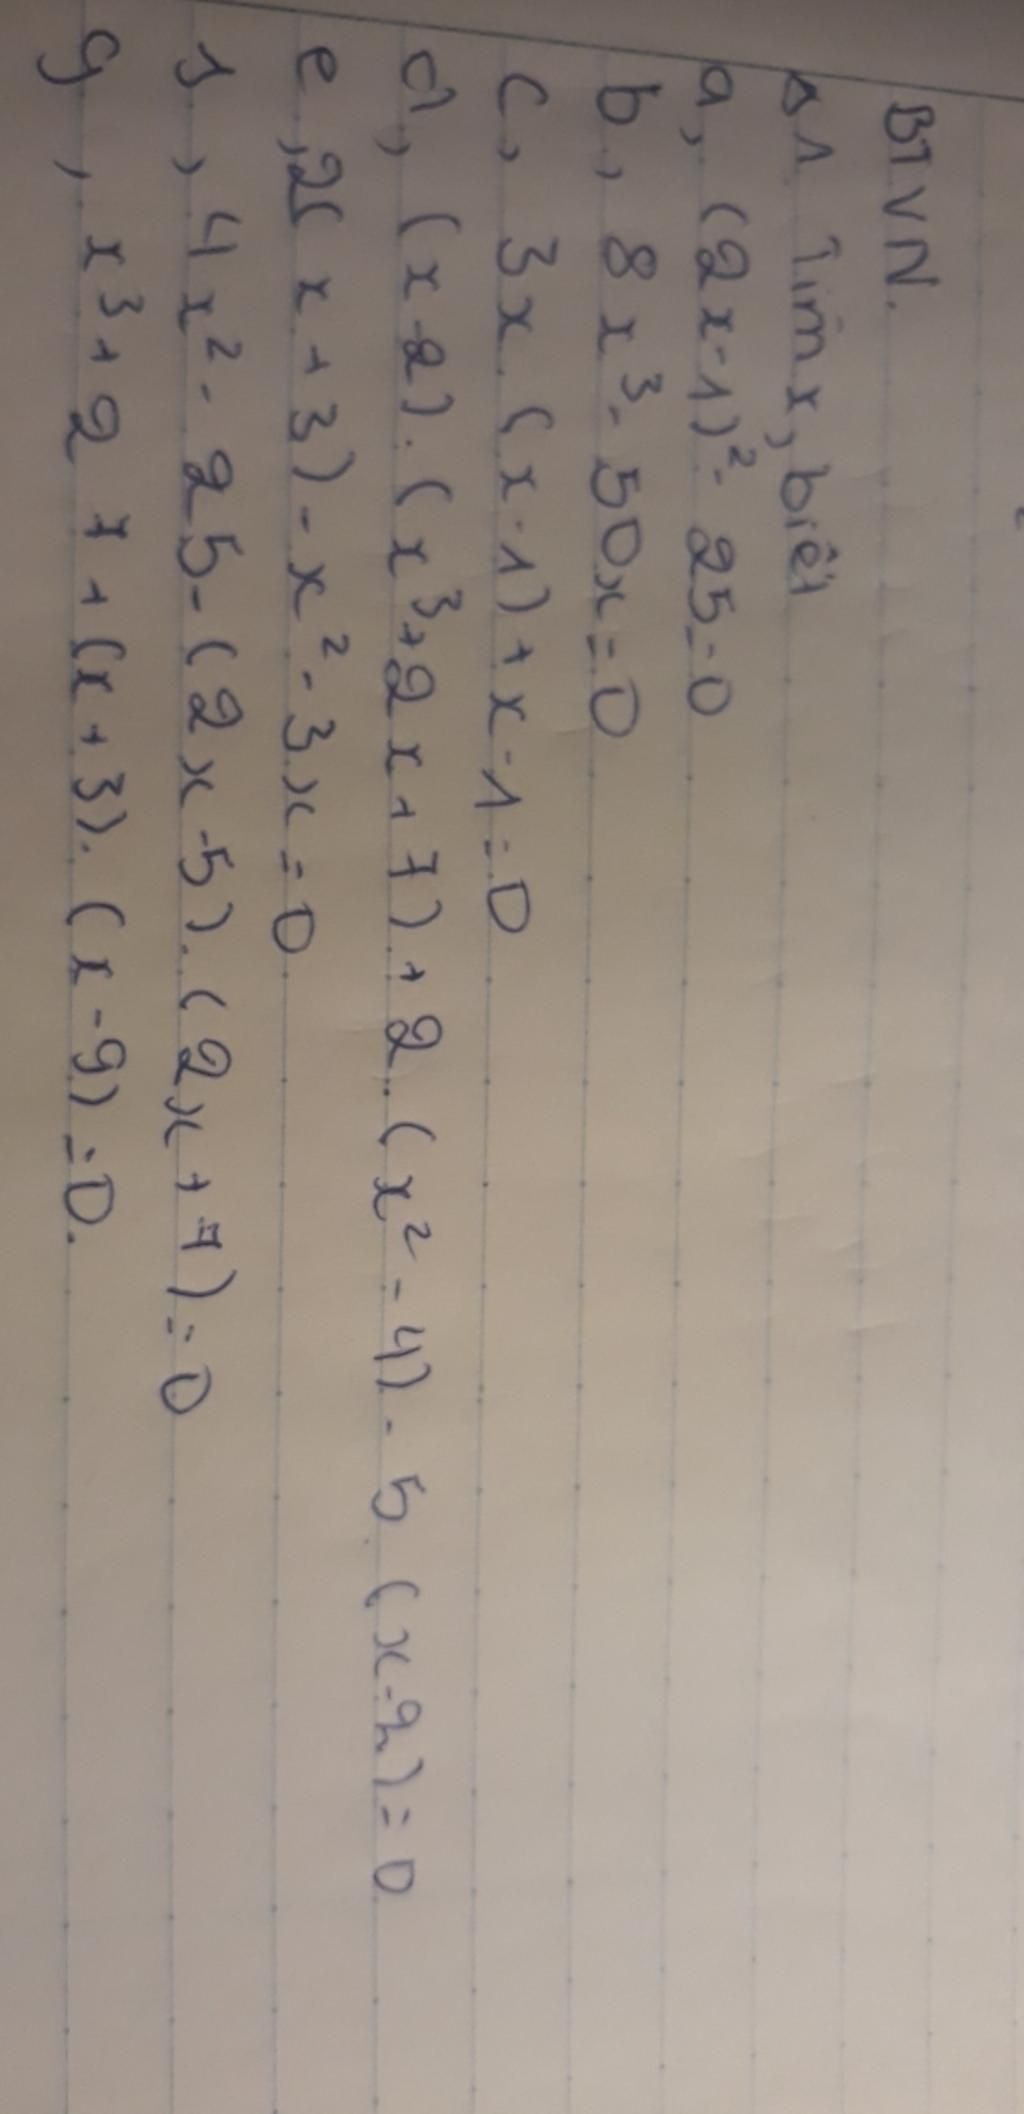 BTVN.
B1 Tìm x, biết
a, (2x-1)² - 25 = 0
b, 8x³ - 50x = 0
c, 3x. (x-1) + x - 1 = 0
d, (x-2). (x³ + 2x + 7) + 2. (x² - 4) - 5 (x-2) = 0
e, 2(x+3) - x² - 3x = 0
f, 4x² - 25 - (2x-5). (2x+7) = 0
g, x³ + 27 + (x+3). (x-9) = 0.